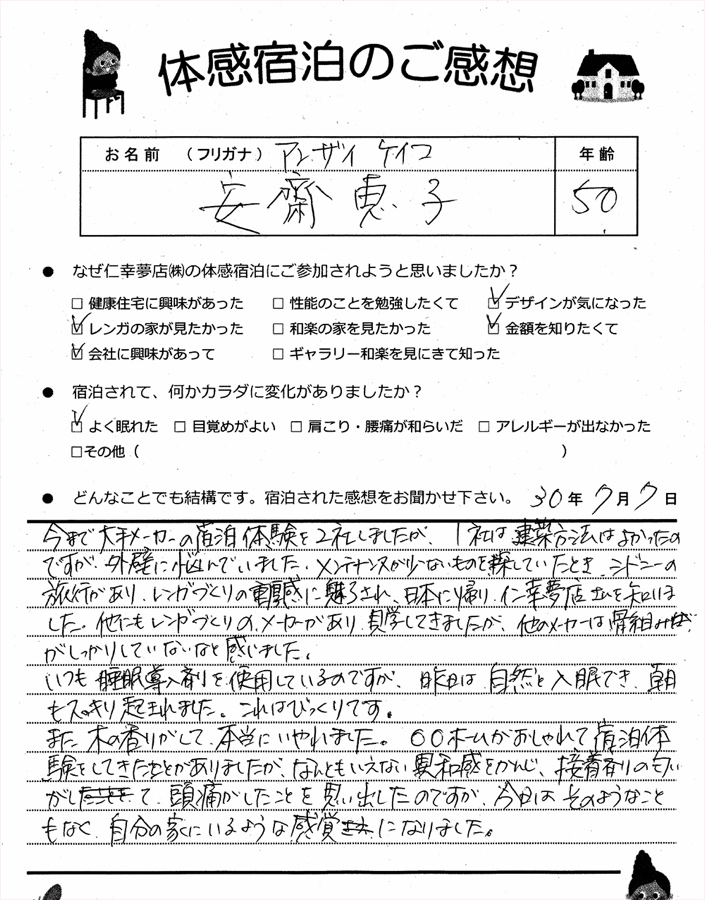 体感宿泊のご感想
お名前 （フリガナ） アンザイ ケイコ 年齢
安齋恵子 50
● なぜ仁幸夢店㈱の体感宿泊にご参加されようと思いましたか？
□ 健康住宅に興味があった □ 性能のことを勉強したくて ☑ デザインが気になった
☑ レンガの家が見たかった □ 和楽の家を見たかった ☑ 金額を知りたくて
☑ 会社に興味があって □ ギャラリー和楽を見にきて知った
● 宿泊されて、何かカラダに変化がありましたか？
☑ よく眠れた □ 目覚めがよい □ 肩こり・腰痛が和らいだ □ アレルギーが出なかった
□その他（ ）
● どんなことでも結構です。宿泊された感想をお聞かせ下さい。 30年 7月 7日
今まで大手メーカーの宿泊体験を2社しましたが、1社は建築方法はよかったの
ですが、外壁に悩んでいました。メンテナンスが少ないものを探していたとき、シドニーの
旅行があり、レンガづくりの重厚感に魅了され、日本に帰り、仁幸夢店さんを知りま
した。他にもレンガづくりのメーカーがあり、見学してきましたが、他のメーカーは骨組み
がしっかりしていないなと感じました。
いつも睡眠導入剤を使用しているのですが、昨日は自然と入眠でき、朝
もスッキリ起きれました。これはびっくりです。
また木の香りがして、本当にいやされました。〇〇ホームがおしゃれで宿泊体
験をしてきたことがありましたが、なんともいえない異和感をかんじ、接着剤の匂い
がして、頭痛がしたことを思い出したのですが、今日はそのようなこと
もなく、自分の家にいるような感覚になりました。